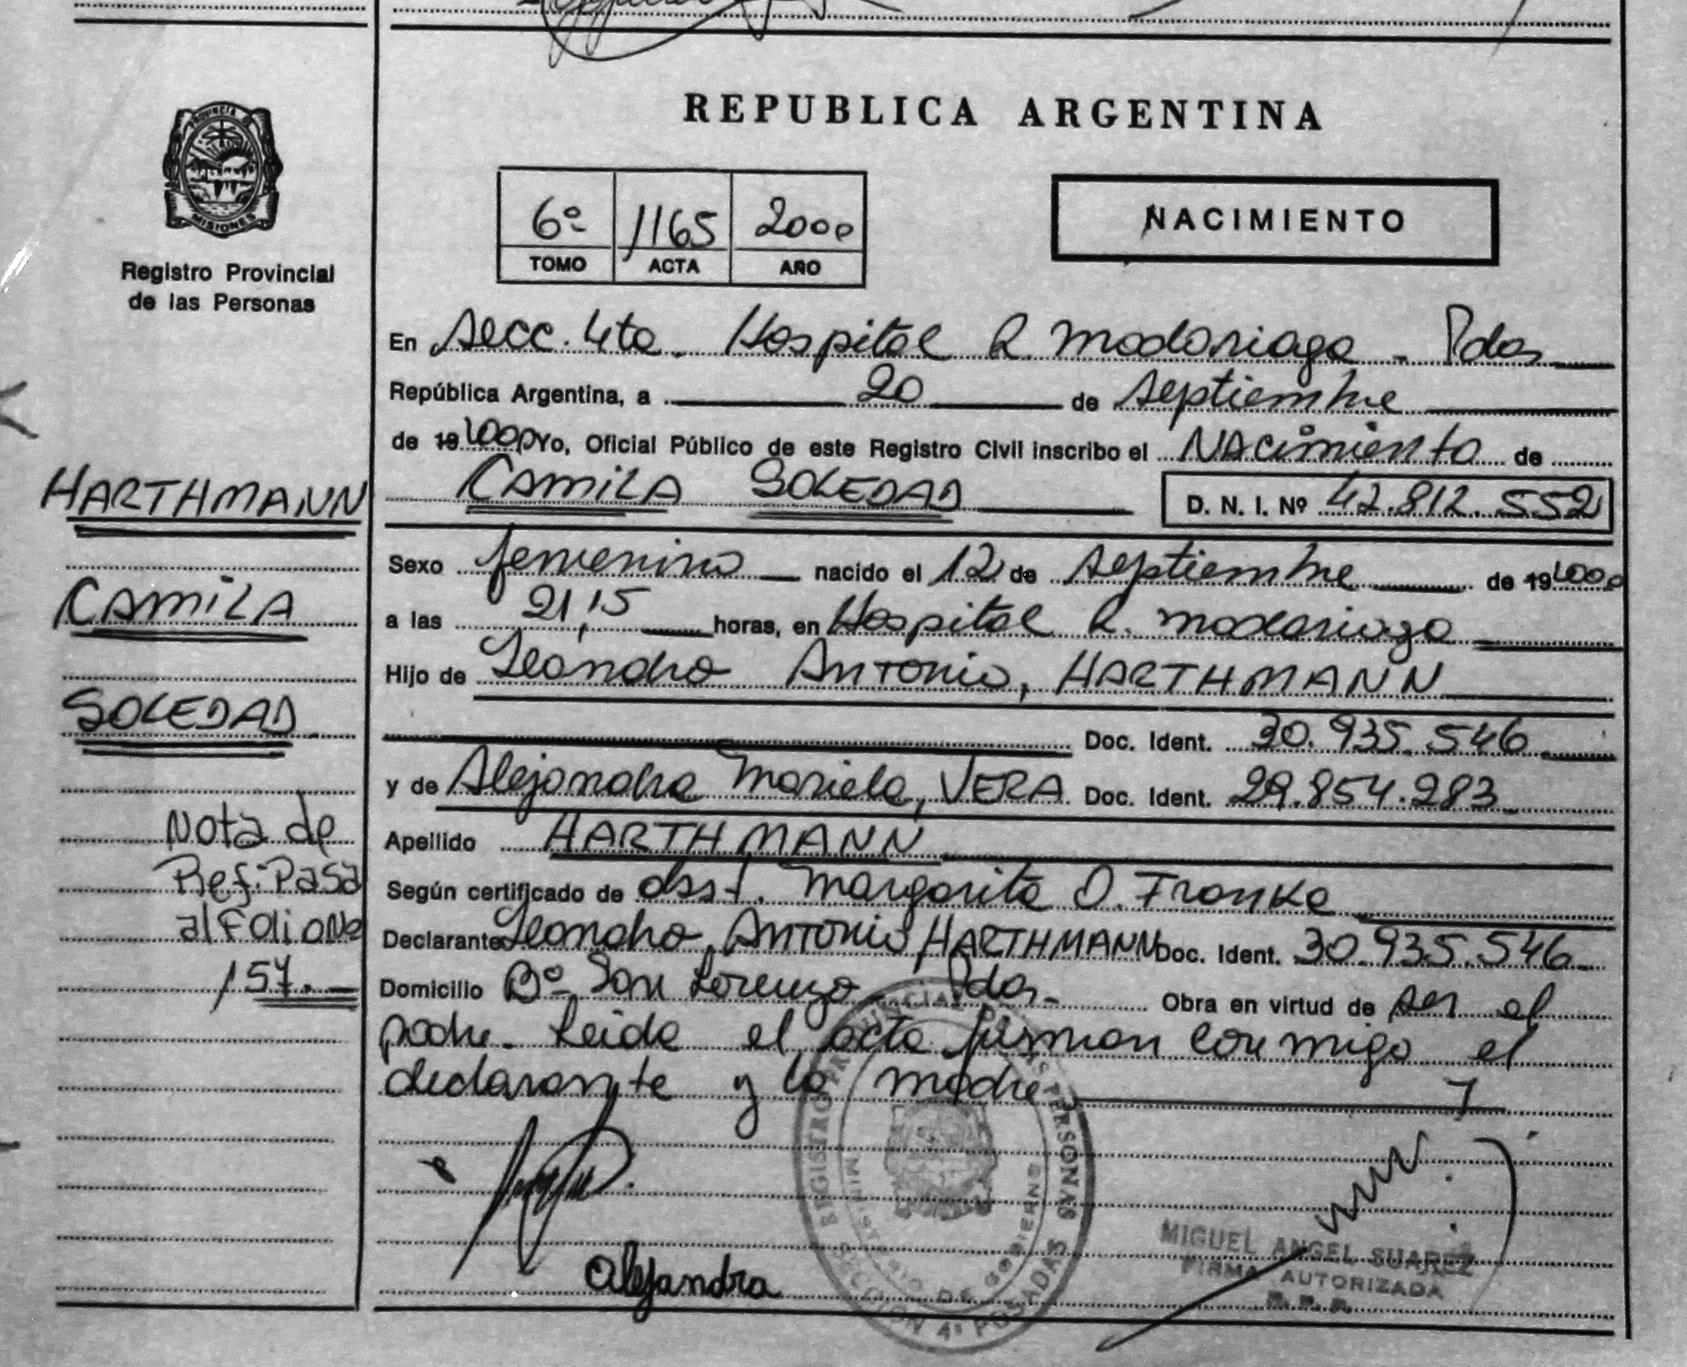 PROVINCIA DE
MISIONES
Registro Provincial
de las Personas
HARTHMANN
CAMILA
SOLEDAD
Nota de
Ref: Pasa
al Folio Nº
157.-
REPUBLICA ARGENTINA
6º 1165 2000
TOMO ACTA AÑO
NACIMIENTO
En Secc. 4ta. Hospital R. Madariaga - Pdas
República Argentina, a 20 de Septiembre
de 19 2000 Yo, Oficial Público de este Registro Civil inscribo el NAcimiento de
CAMILA SOLEDAD D. N. I. Nº 42.812.552
Sexo femenino nacido el 12 de Septiembre de 19 2000
a las 21,15 horas, en Hospital R. Madariaga
Hijo de Leandro ANTONIO, HARTHMANN
Doc. Ident. 30.935.546
y de Alejandra Mariela, VERA Doc. Ident. 29.854.283
Apellido HARTHMANN
Según certificado de obst. Margarita O. Franke
Declarante Leandro, ANTONIO HARTHMANN Doc. Ident. 30.935.546
Domicilio Bº San Lorenzo Pdas- Obra en virtud de ser el
padre. Leida el acta firman conmigo el
declarante y la madre
Alejandra
REGISTRO PROVINCIAL DE LAS PERSONAS
MINISTERIO DE GOBIERNO
SECCION 4ª POSADAS
MIGUEL ANGEL SUAREZ
FIRMA AUTORIZADA
R. P. P.